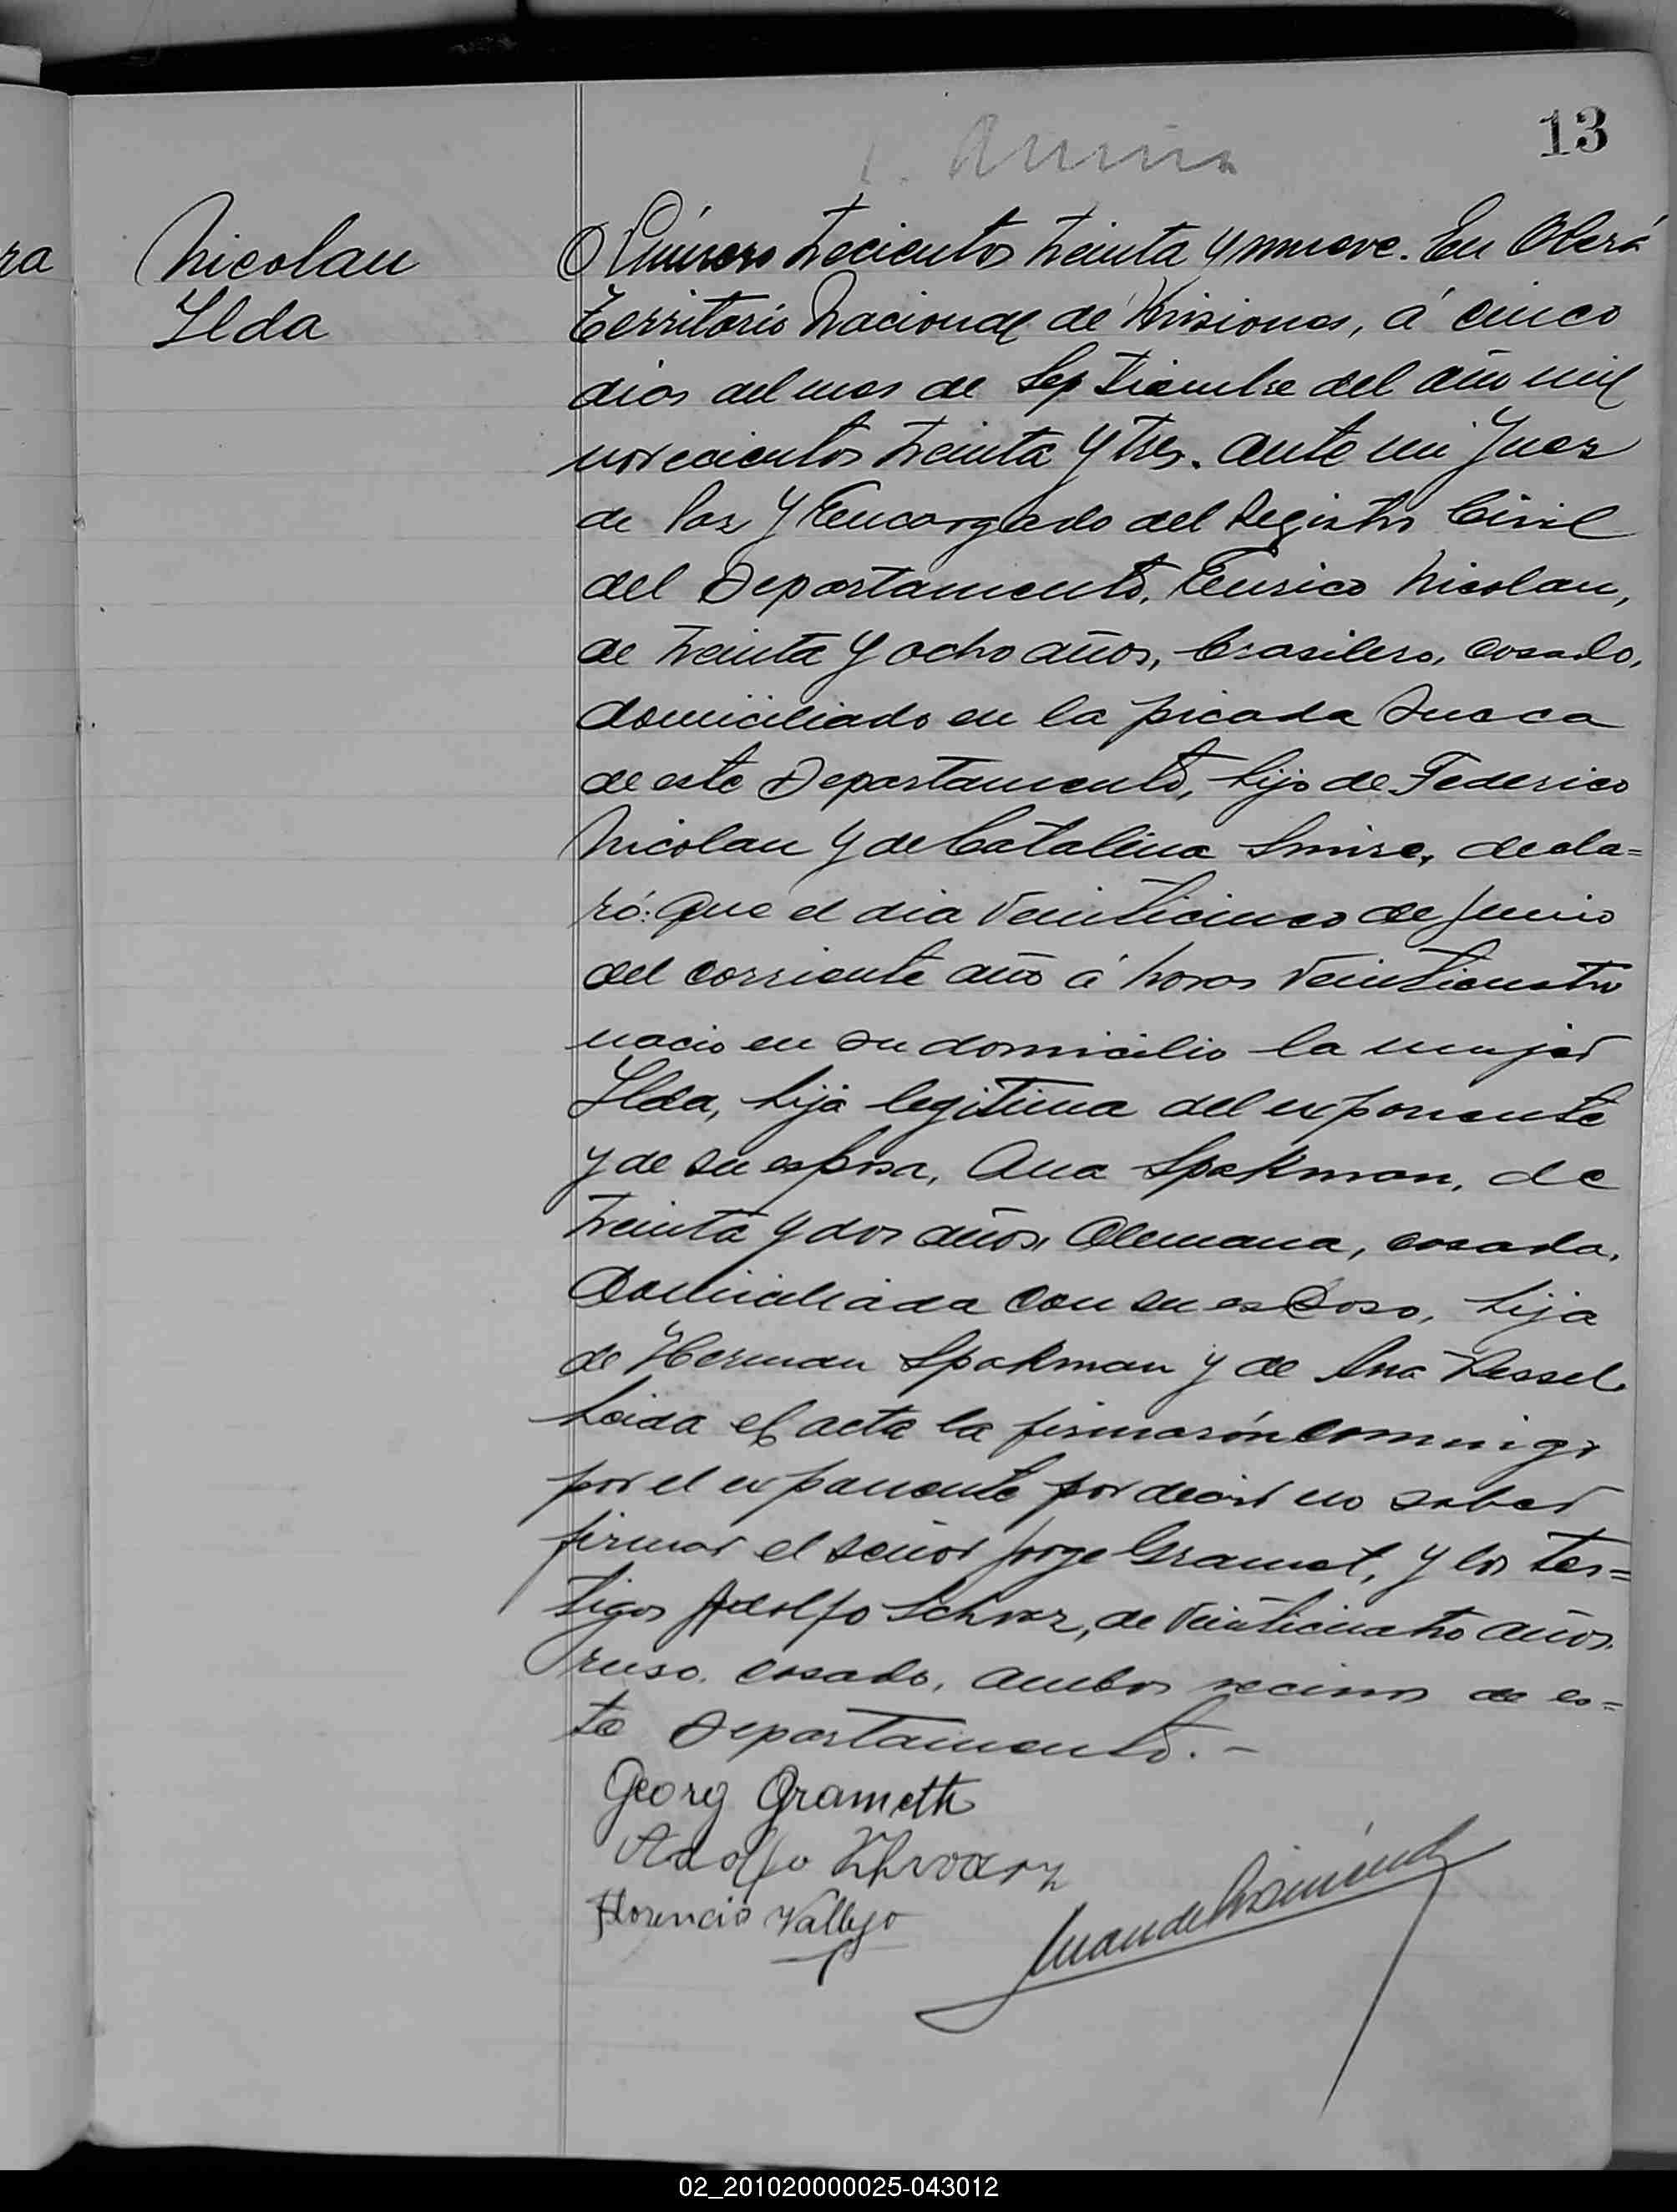 13
Nicolau
Ilda
Número trecientos treinta y nueve. En Oberá
Territorio Nacional de Misiones, á cinco
dias del mes de Septiembre del año mil
novecientos treinta y tres. ante mi Juez
de Paz y Encargado del Registro Civil
del Departamento, Eurico Nicolau,
de treinta y ocho años, brasilero, casado,
domiciliado en la picada Sueca
de este Departamento, hijo de Federico
Nicolau y de Catalina decla=
ró: Que el dia veinticinco de Junio
del corriente año á horas veinticuatro
nacio en su domicilio la mujer
Ilda, hija legitima del exponente
y de su esposa, Ana Spakman, de
treinta y dos años, Alemana, casada,
domiciliada con su esposo, hija
de Herman Spakman y de Ana Kessel.
Leida el acta la firmarón conmigo
por el exponente por decir no saber
firmar el señor Jorge Gramet, y los tes=
tigos Adolfo Schvaz, de veinticuatro años,
ruso, casado, ambos vecinos de es=
te Departamento. -
Georg Grameth
Adolfo Schwarz
Florencio Vallejo
02_201020000025-043012
ra